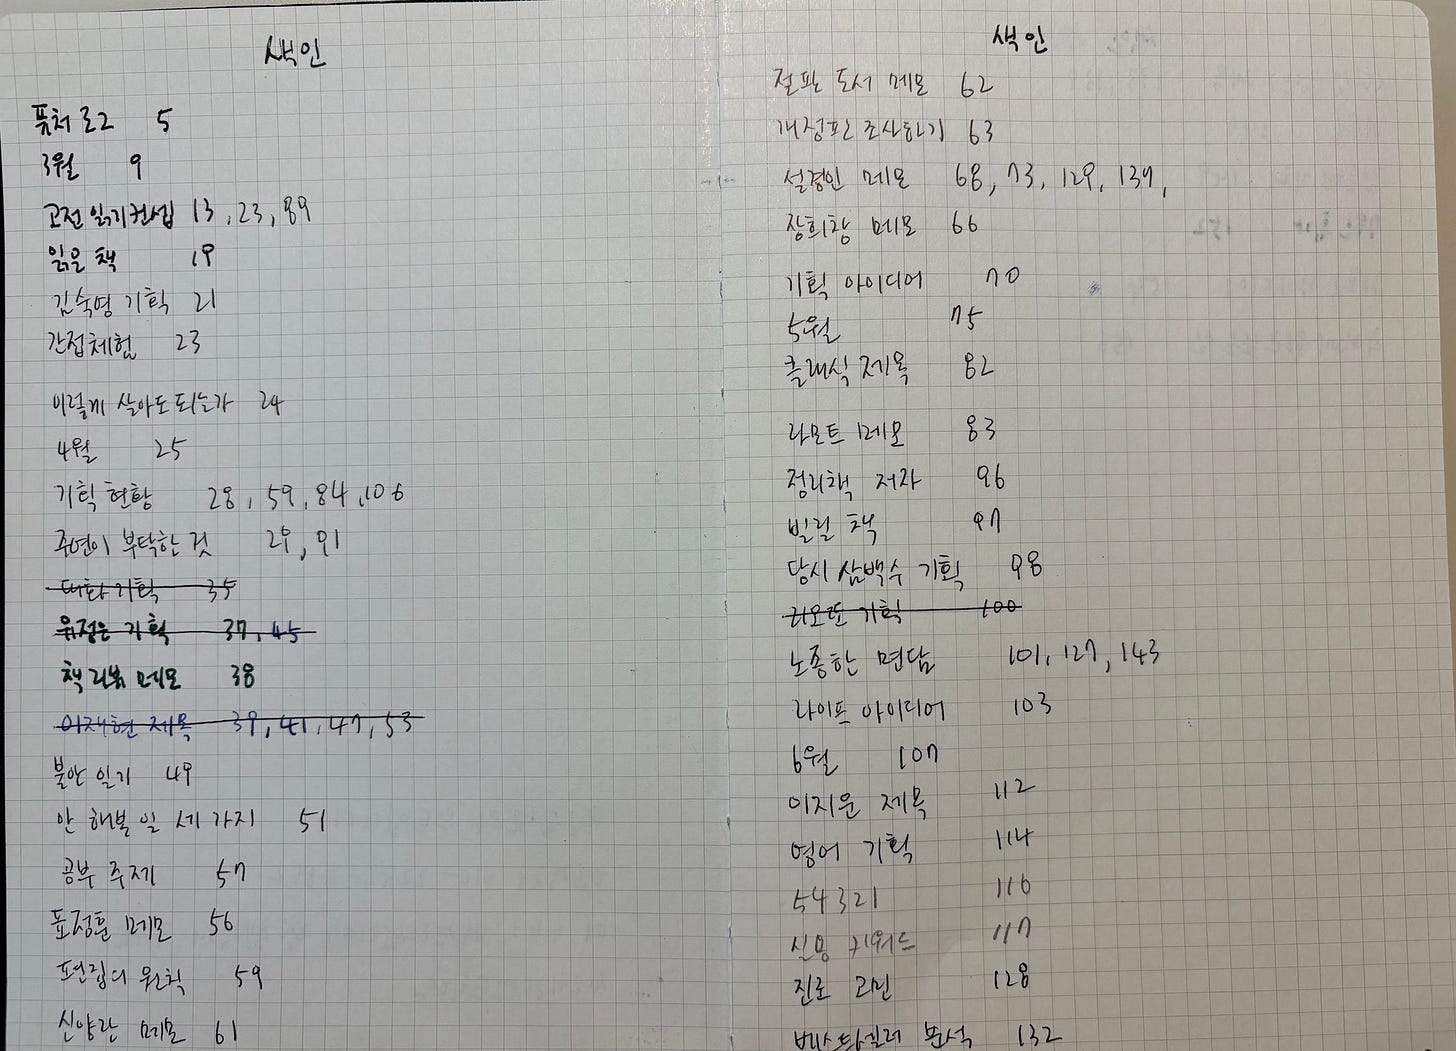 색인
퓨처 로그 5
3월 9
고전 읽기 컨셉 13, 23, 89
읽은 책 19
김숙영 기획 21
간접체험 23
이렇게 살아도 되는가 24
4월 25
기획 현황 28, 59, 84, 106
주연이 부탁한 것 29, 91
기획 35
위정은 기획 37, 45
책 리뷰 메모 38
이재현 제목 39, 41, 47, 53
불안 일기 49
안 해본 일 세 가지 51
공부 주제 57
표정훈 메모 56
편집의 원칙 59
신양란 메모 61
색인
절판 도서 메모 62
개정판 조사하기 63
설경인 메모 68, 73, 129, 137,
장희창 메모 66
기획 아이디어 70
5월 75
클래식 제목 82
라모트 메모 83
정리책 저자 96
빌릴 책 97
당시 삼백수 기획 98
기획 100
노종한 면담 101, 127, 143
라이프 아이디어 103
6월 107
이지운 제목 112
영어 기획 114
54321 116
키워드 117
진로 고민 128
베스트셀러 분석 132